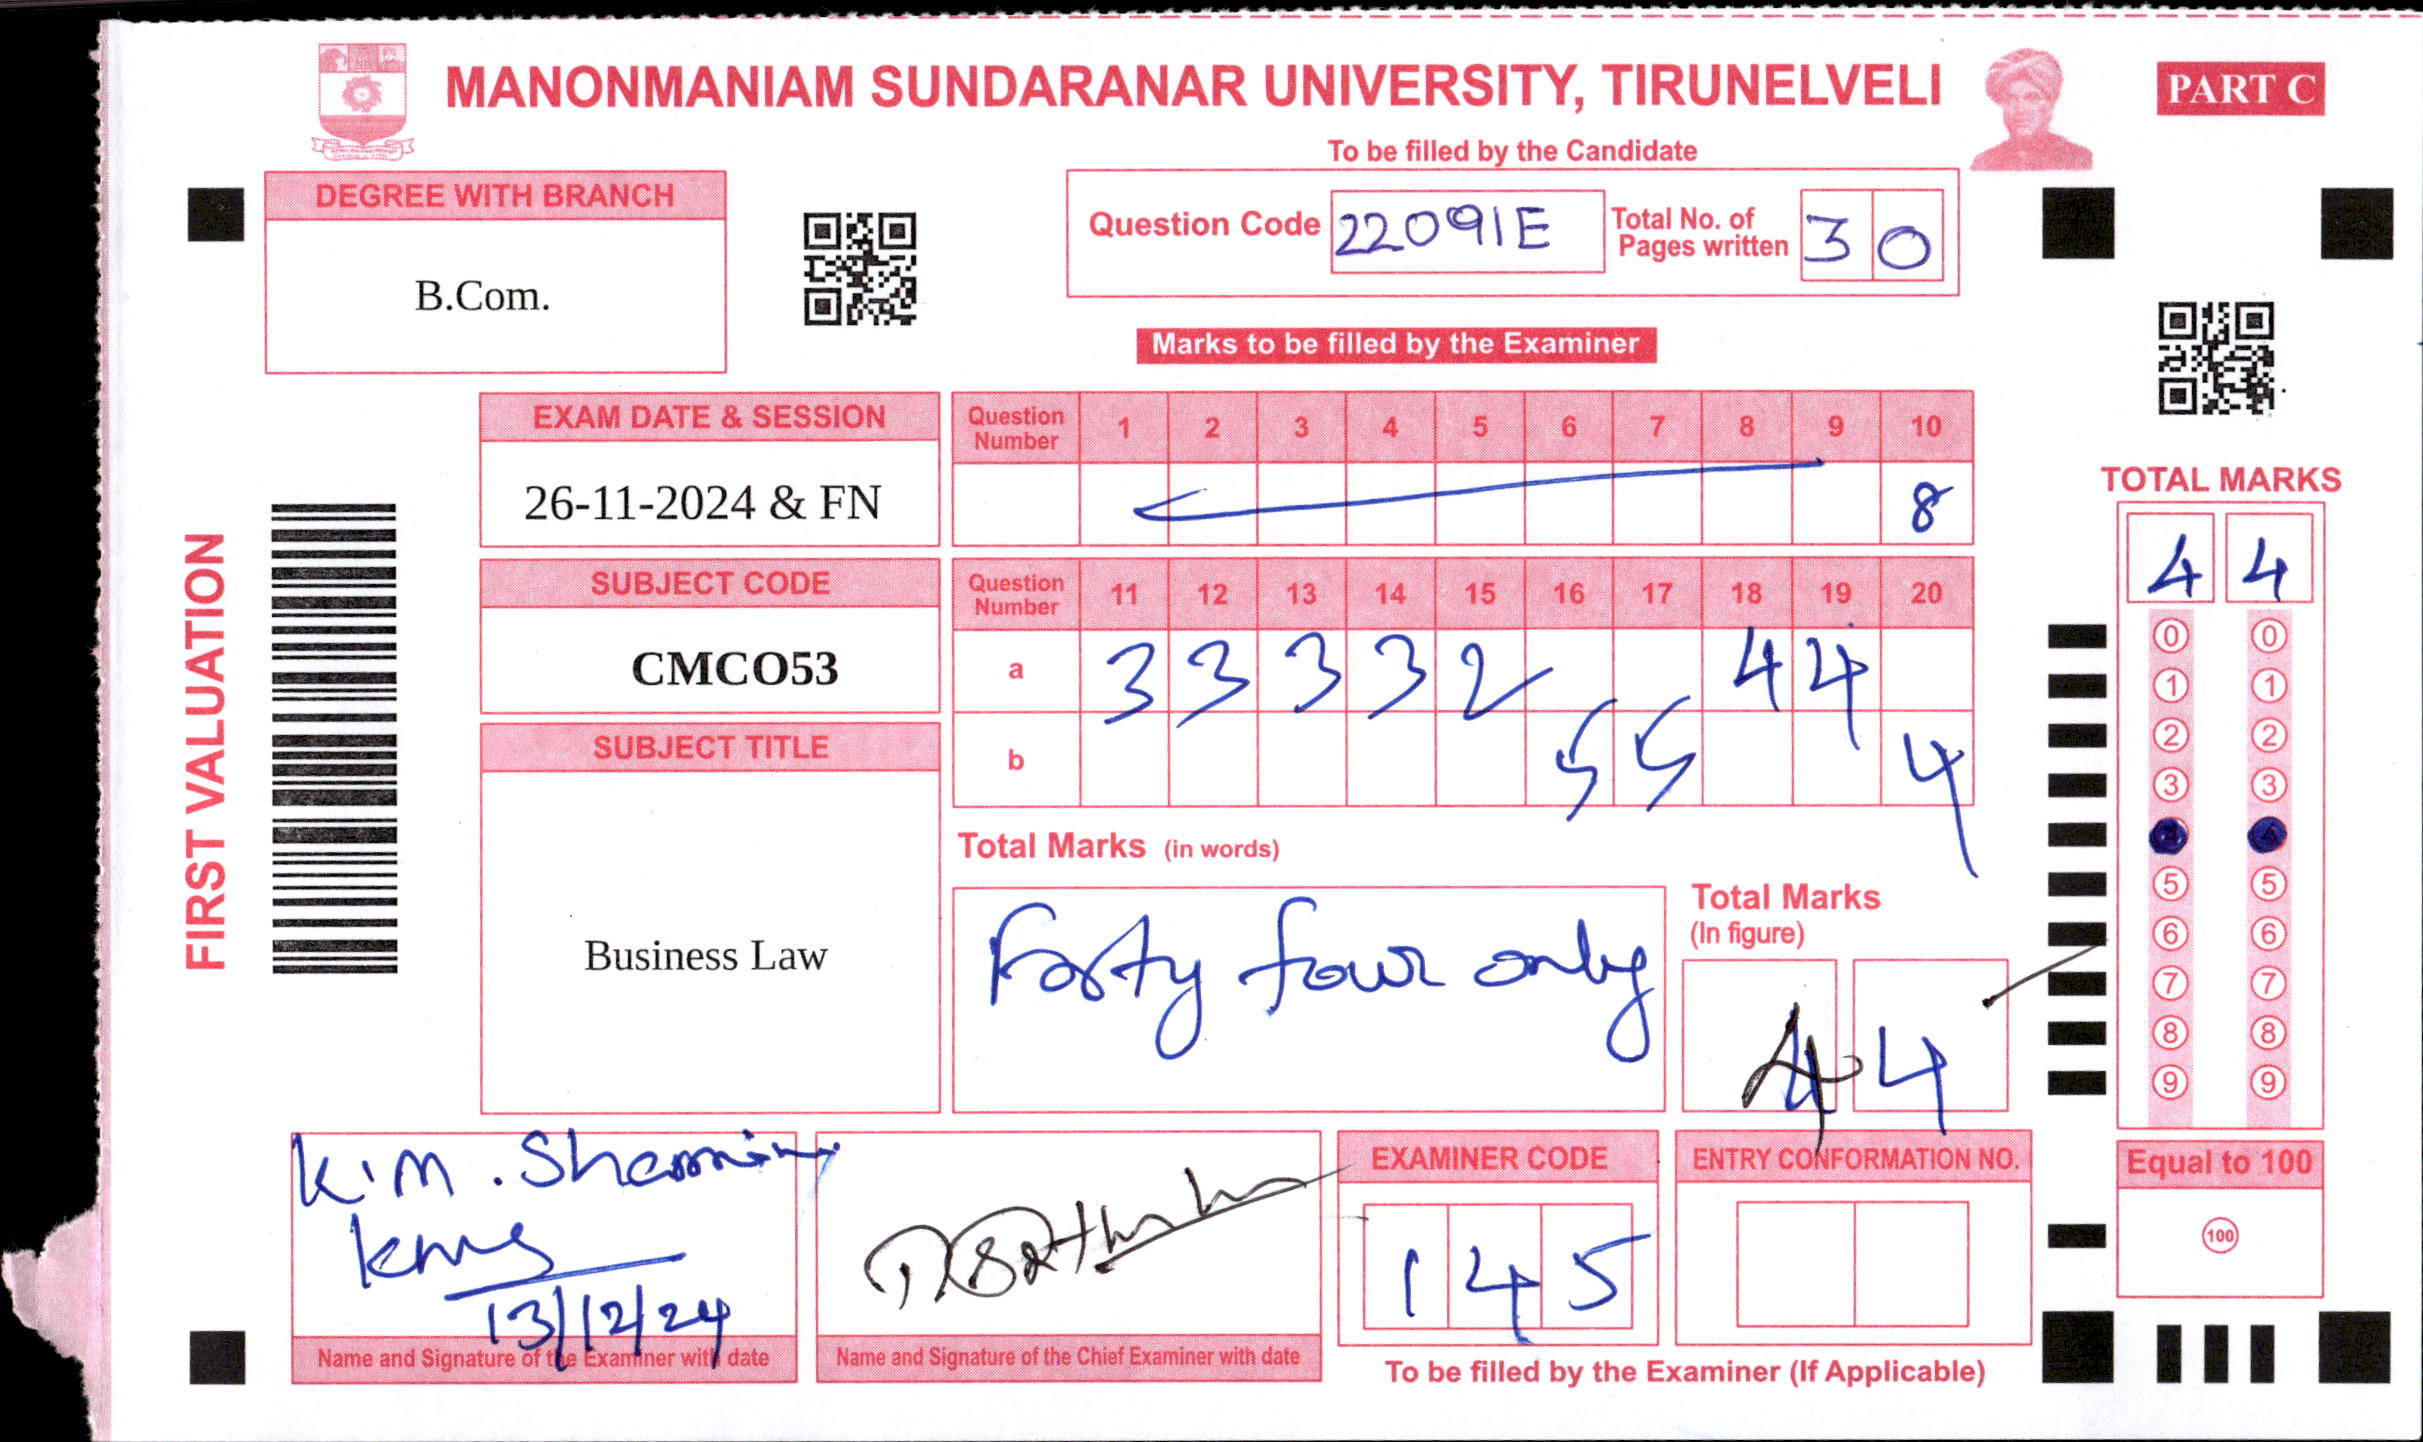 MANONMANIAM SUNDARANAR UNIVERSITY, TIRUNELVELI
PART C
To be filled by the Candidate
DEGREE WITH BRANCH
B.Com.
Question Code 22091E
Total No. of Pages written 30
Marks to be filled by the Examiner
EXAM DATE & SESSION
26-11-2024 & FN
Question Number 1 2 3 4 5 6 7 8 9 10
8
SUBJECT CODE
CMCO53
Question Number 11 12 13 14 15 16 17 18 19 20
a 3 3 3 3 2 4 4
b 5 5 4
SUBJECT TITLE
Business Law
Total Marks (in words)
Forty four only
Total Marks
(In figure)
4 4
FIRST VALUATION
TOTAL MARKS
4 4
0 0
1 1
2 2
3 3
4
5 5
6 6
7 7
8 8
9 9
Equal to 100
100
K.M.
13/12/24
Name and Signature of the Examiner with date
Name and Signature of the Chief Examiner with date
EXAMINER CODE
1 4 5
ENTRY CONFORMATION NO.
To be filled by the Examiner (If Applicable)